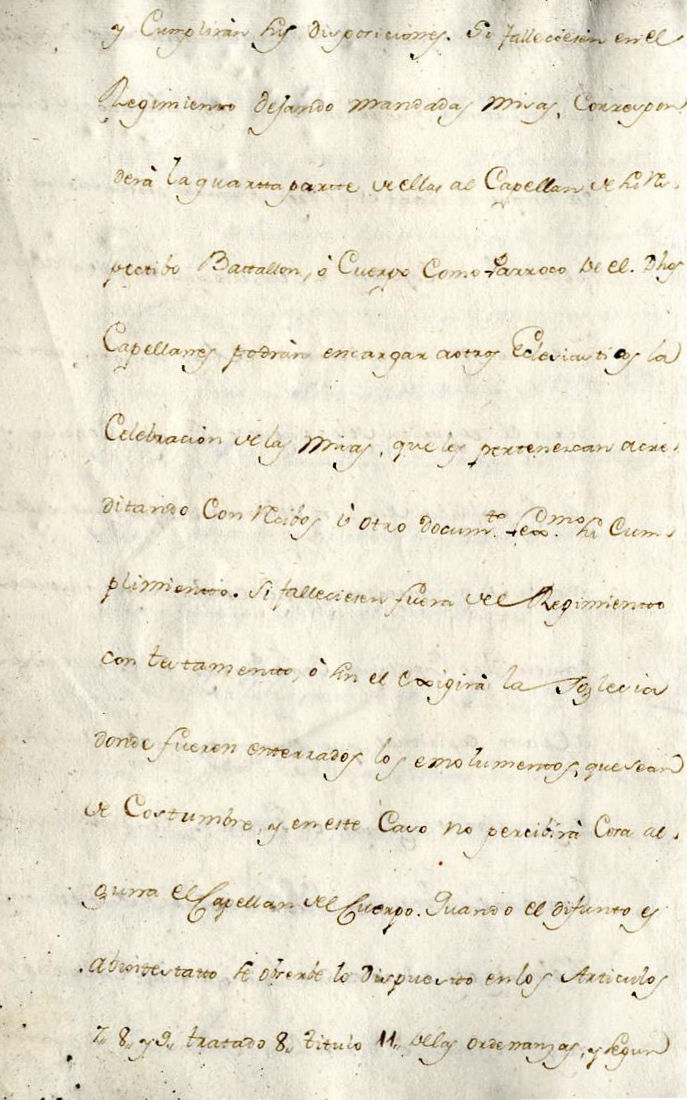 y Cumpliràn sus disposiciones. Si falleciesen en el
Regimiento dejando mandadas Misas, Correspon
derà la quartta partte de ellas al Capellan de su Res.
pectibo Battallon, ò Cuerpo Como Parroco de el. Dhos
Capellanes podràn encargar a otros Eclesiasticos la
Celebracion de las Misas, que les pertenescan acre.
ditando Con Recibos ù otro docum.to su Cum.
plimientto. Si falleciesen fuera del Regimientto
con testamentto, ò sin el exigirà la Iglesia
donde fueren enterrados los emolumentos, que sean
de Costumbre, y en este Caso no percibirà Cosa al.
guna el Capellan del Cuerpo. Quando el difunto es
abinttestatto se observe lo dispuestto en los Articulos
7,, 8,, y 9,, trattado 8,, titulo 11,, de las ordenanzas, y segun